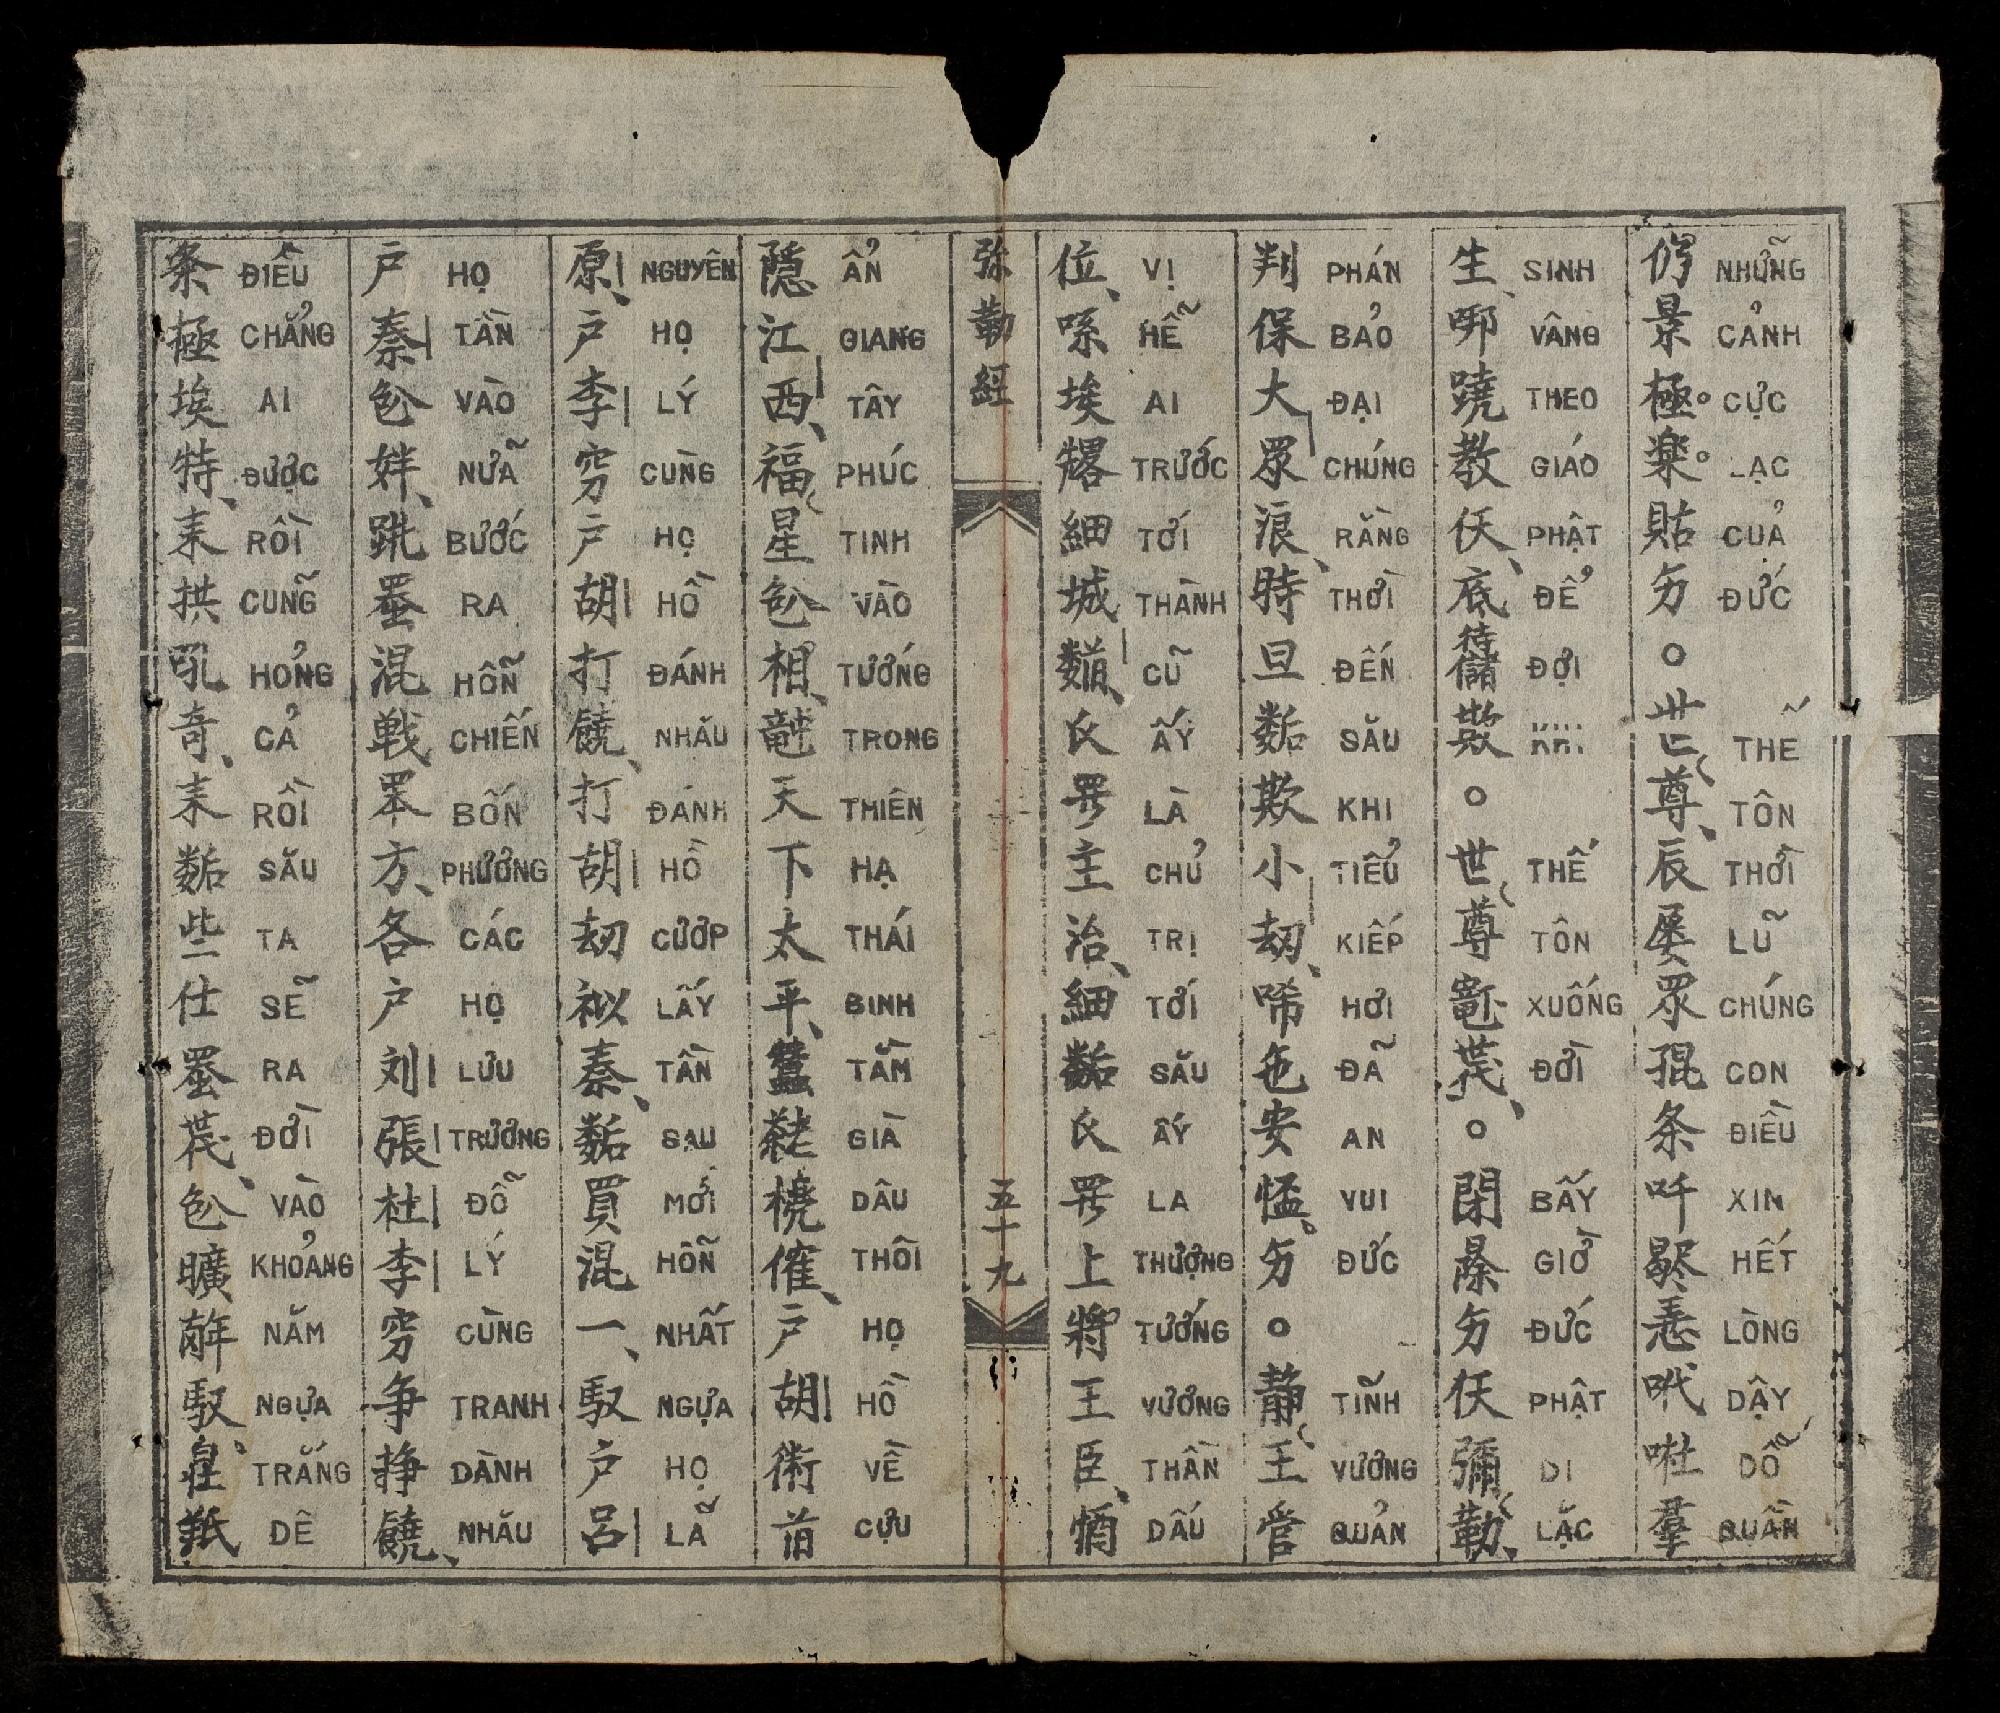 仍景極。楽。貼。世尊辰屡眾昆条吀歇𢚸吺群
NHỮNG CẢNH CỰC LẠC CUẢ ĐỨC THẾ TÔN THỜI LŨ CHÚNG CON ĐIỀU XIN HẾT LÒNG DẬY DỖ QUẦN
生教伕底欺。世尊。伕彌勒
SINH VÂNG THEO GIÁO PHẬT ĐỂ ĐỢI KHI THẾ TÔN XUỐNG ĐỜI BẤY GIỜ ĐỨC PHẬT DI LẶC
判保大眾浪時旦欺小刼唏㐌安。静王管
PHÁN BẢO ĐẠI CHÚNG RẰNG THỜI ĐẾN SĂU KHI TIỂU KIẾP HƠI ĐÃ AN VUI ĐỨC TĨNH VƯƠNG QUẢN
位埃細城氏主治細氏上將王臣
VỊ HỄ AI TRƯỚC TỚI THÀNH CŨ ẤY LÀ CHỦ TRỊ TỚI SĂU ẤY LA THƯỢNG TƯỚNG VƯƠNG THẦN DẤU
弥勒經
五十九
隱江西福星相天下太平戶胡術
ẨN GIANG TÂY PHÚC TINH VÀO TƯỚNG TRONG THIÊN HẠ THÁI BINH TẰM GIÀ DÂU THÔI HỌ HỒ VỀ CỰU
原戶李戶胡打饒打胡刼秦買混一馭戶呂
NGUYÊN HỌ LÝ CÙNG HỌ HỒ ĐÁNH NHĂU ĐÁNH HỒ CƯỚP LẤY TẦN SAU MỚI HỖN NHẤT NGỰA HỌ LÃ
戶秦混戦方各戶刘張杜李争饒
HỌ TẦN VÀO NỮA BƯỚC RA HỖN CHIẾN BỐN PHƯƠNG CÁC HỌ LƯU TRƯƠNG ĐỖ LÝ CÙNG TRANH DÀNH NHĂU
条極埃特耒拱吼奇耒些仕曠馭
ĐIỀU CHẲNG AI ĐƯỢC RỒI CUNG̃ HỎNG CẢ RỒI SĂU TA SẼ RA ĐỜI VÀO KHOẢNG NĂM NGỰA TRẮNG DÊ